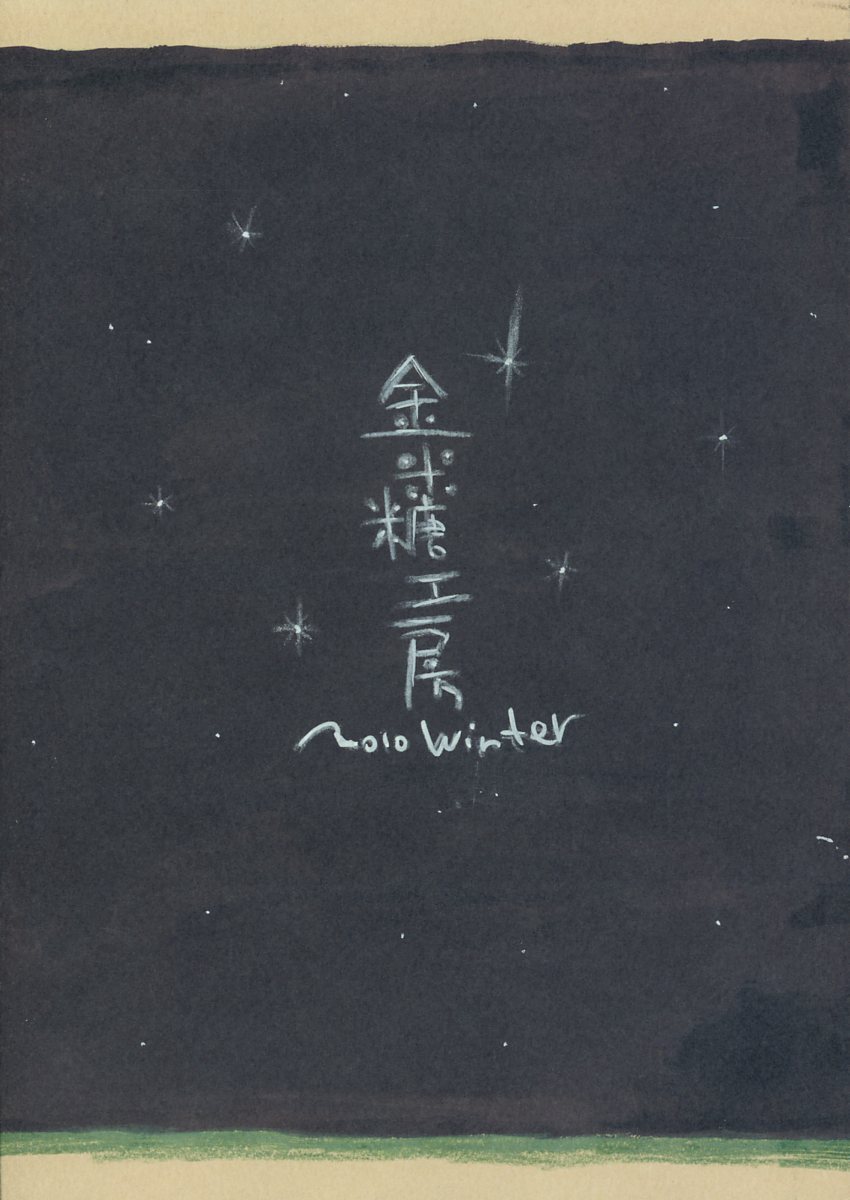 金米糖工房
2010 Winter